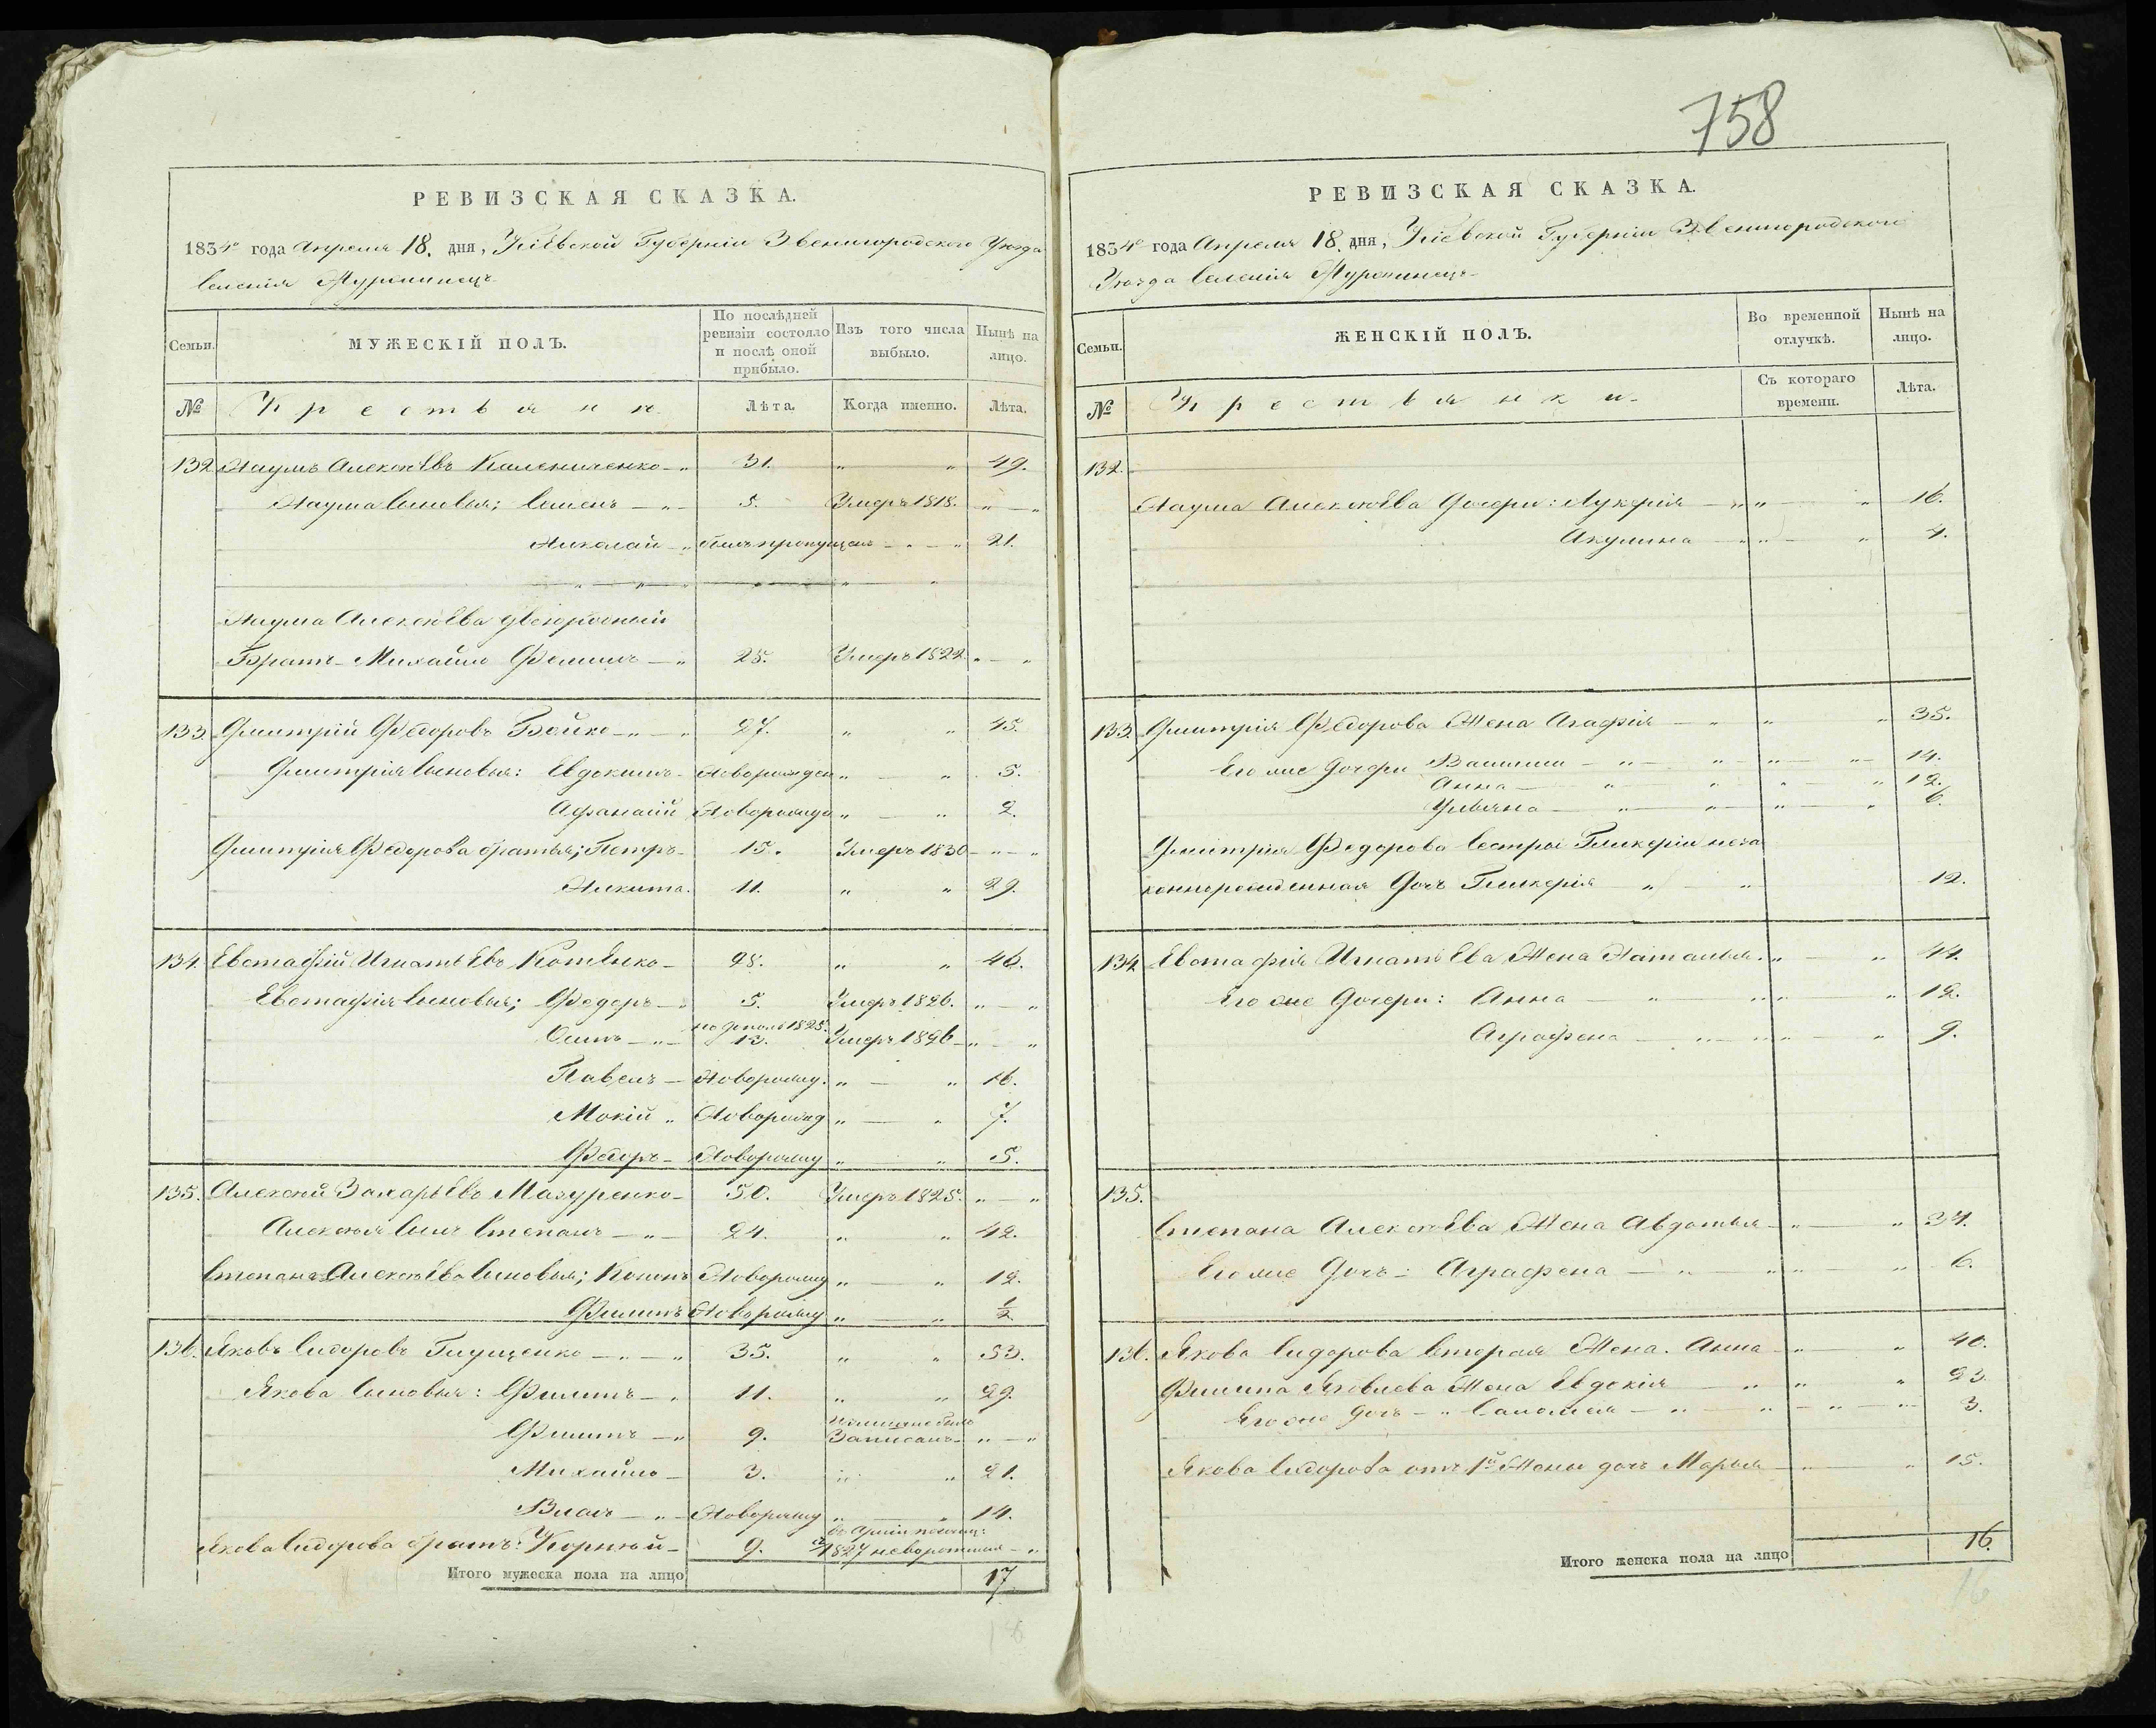 758
РЕВИЗСКАЯ СКАЗКА.
1834го года Апреля 18. дня, Кіевской Губерніи Звенигородского Уезда
Селенія
Семьи. МУЖЕСКІЙ ПОЛЪ. По послѣдней ревизіи состояло и послѣ оной прибыло. Изъ того числа выбыло. Нынѣ на лицо.
№ Крестьяне. Лѣта. Когда именно. Лѣта.
132. Наумъ Алексѣевъ Калениченко 31. " " 49.
Наума Сыновья; Семенъ 5. Умеръ 1818. " "
Николай былъ пропущенъ " " 21.
Наума Алексѣева двоюродный
Братъ Михайло 25. Умеръ 1822 " "
133. Дмитрій Ѳедоровъ Бойко 27. " " 45.
Дмитрія Сыновья: Евдокимъ Новорожден " " 5.
Афанасій Новорожд " " 2.
Дмитрія Ѳедорова братья; Петръ 15. Умеръ 1830 " "
Никита. 11. " " 29.
134. Евстафій Игнатьевъ Котенко 28. " " 46.
Евстафія Сыновья; Федоръ 5. Умеръ 1826. " "
Осипъ 1825. 13. Умеръ 1826 " "
Павелъ Новорожд. " " 16.
Мокій " Новорожд " " 7.
Ѳедоръ Новорожд " " 5.
135. Алексей Захарьевъ Мазуренко 50. Умеръ 1825. " "
Алексея Сынъ Степанъ 24. " " 42.
Степана Алексѣева Сыновья; Кононъ Новорожд " " 12.
Филипъ Новорожд " " 1/2
136. Яковъ Сидоровъ Глущенко 35. " " 53.
Якова Сыновья: Филипъ 11. " " 29.
Филипъ 9. Записанъ " "
Михайло 3. " " 21.
Власъ Новорожд " " 14.
Якова Сидорова братъ: Корней 9. 1827 "
Итого мужеска пола на лицо 17.
18
РЕВИЗСКАЯ СКАЗКА.
1834го года Апреля 18. дня, Кіевской Губерніи Звенигородского
Уезда Селенія
Семьи. ЖЕНСКІЙ ПОЛЪ. Во временной отлучкѣ. Нынѣ на лицо.
№ Крестьянки. Съ котораго времени. Лѣта.
132.
Наума Алексѣева Дочери: Лукерія " " 16.
Акулина " " 4.
133. Дмитрія Ѳедорова Жена Агафія " " 35.
Его же Дочери " " 14.
Анна " " 12.
Ульяна " " 6.
Дмитрія Федорова Сестры Гликеріи неза
коннорожденная Дочь Гликерія " " 12.
134. Евстафія Игнатьева Жена Наталья. " " 44.
Его же Дочери: Анна " " 12.
Аграфена " " 9.
135.
Степана Алексѣева Жена Авдотья " " 34.
Его же Дочь: Аграфена " " 6.
136. Якова Сидорова вторая Жена. Анна " " 40.
Филипа Яковлева Жена Евдокія " " 23.
Его же Дочь " Саломея " " 3.
Якова Сидорова отъ 1й Жены дочь Марья " " 15.
Итого женска пола на лицо 16.
16